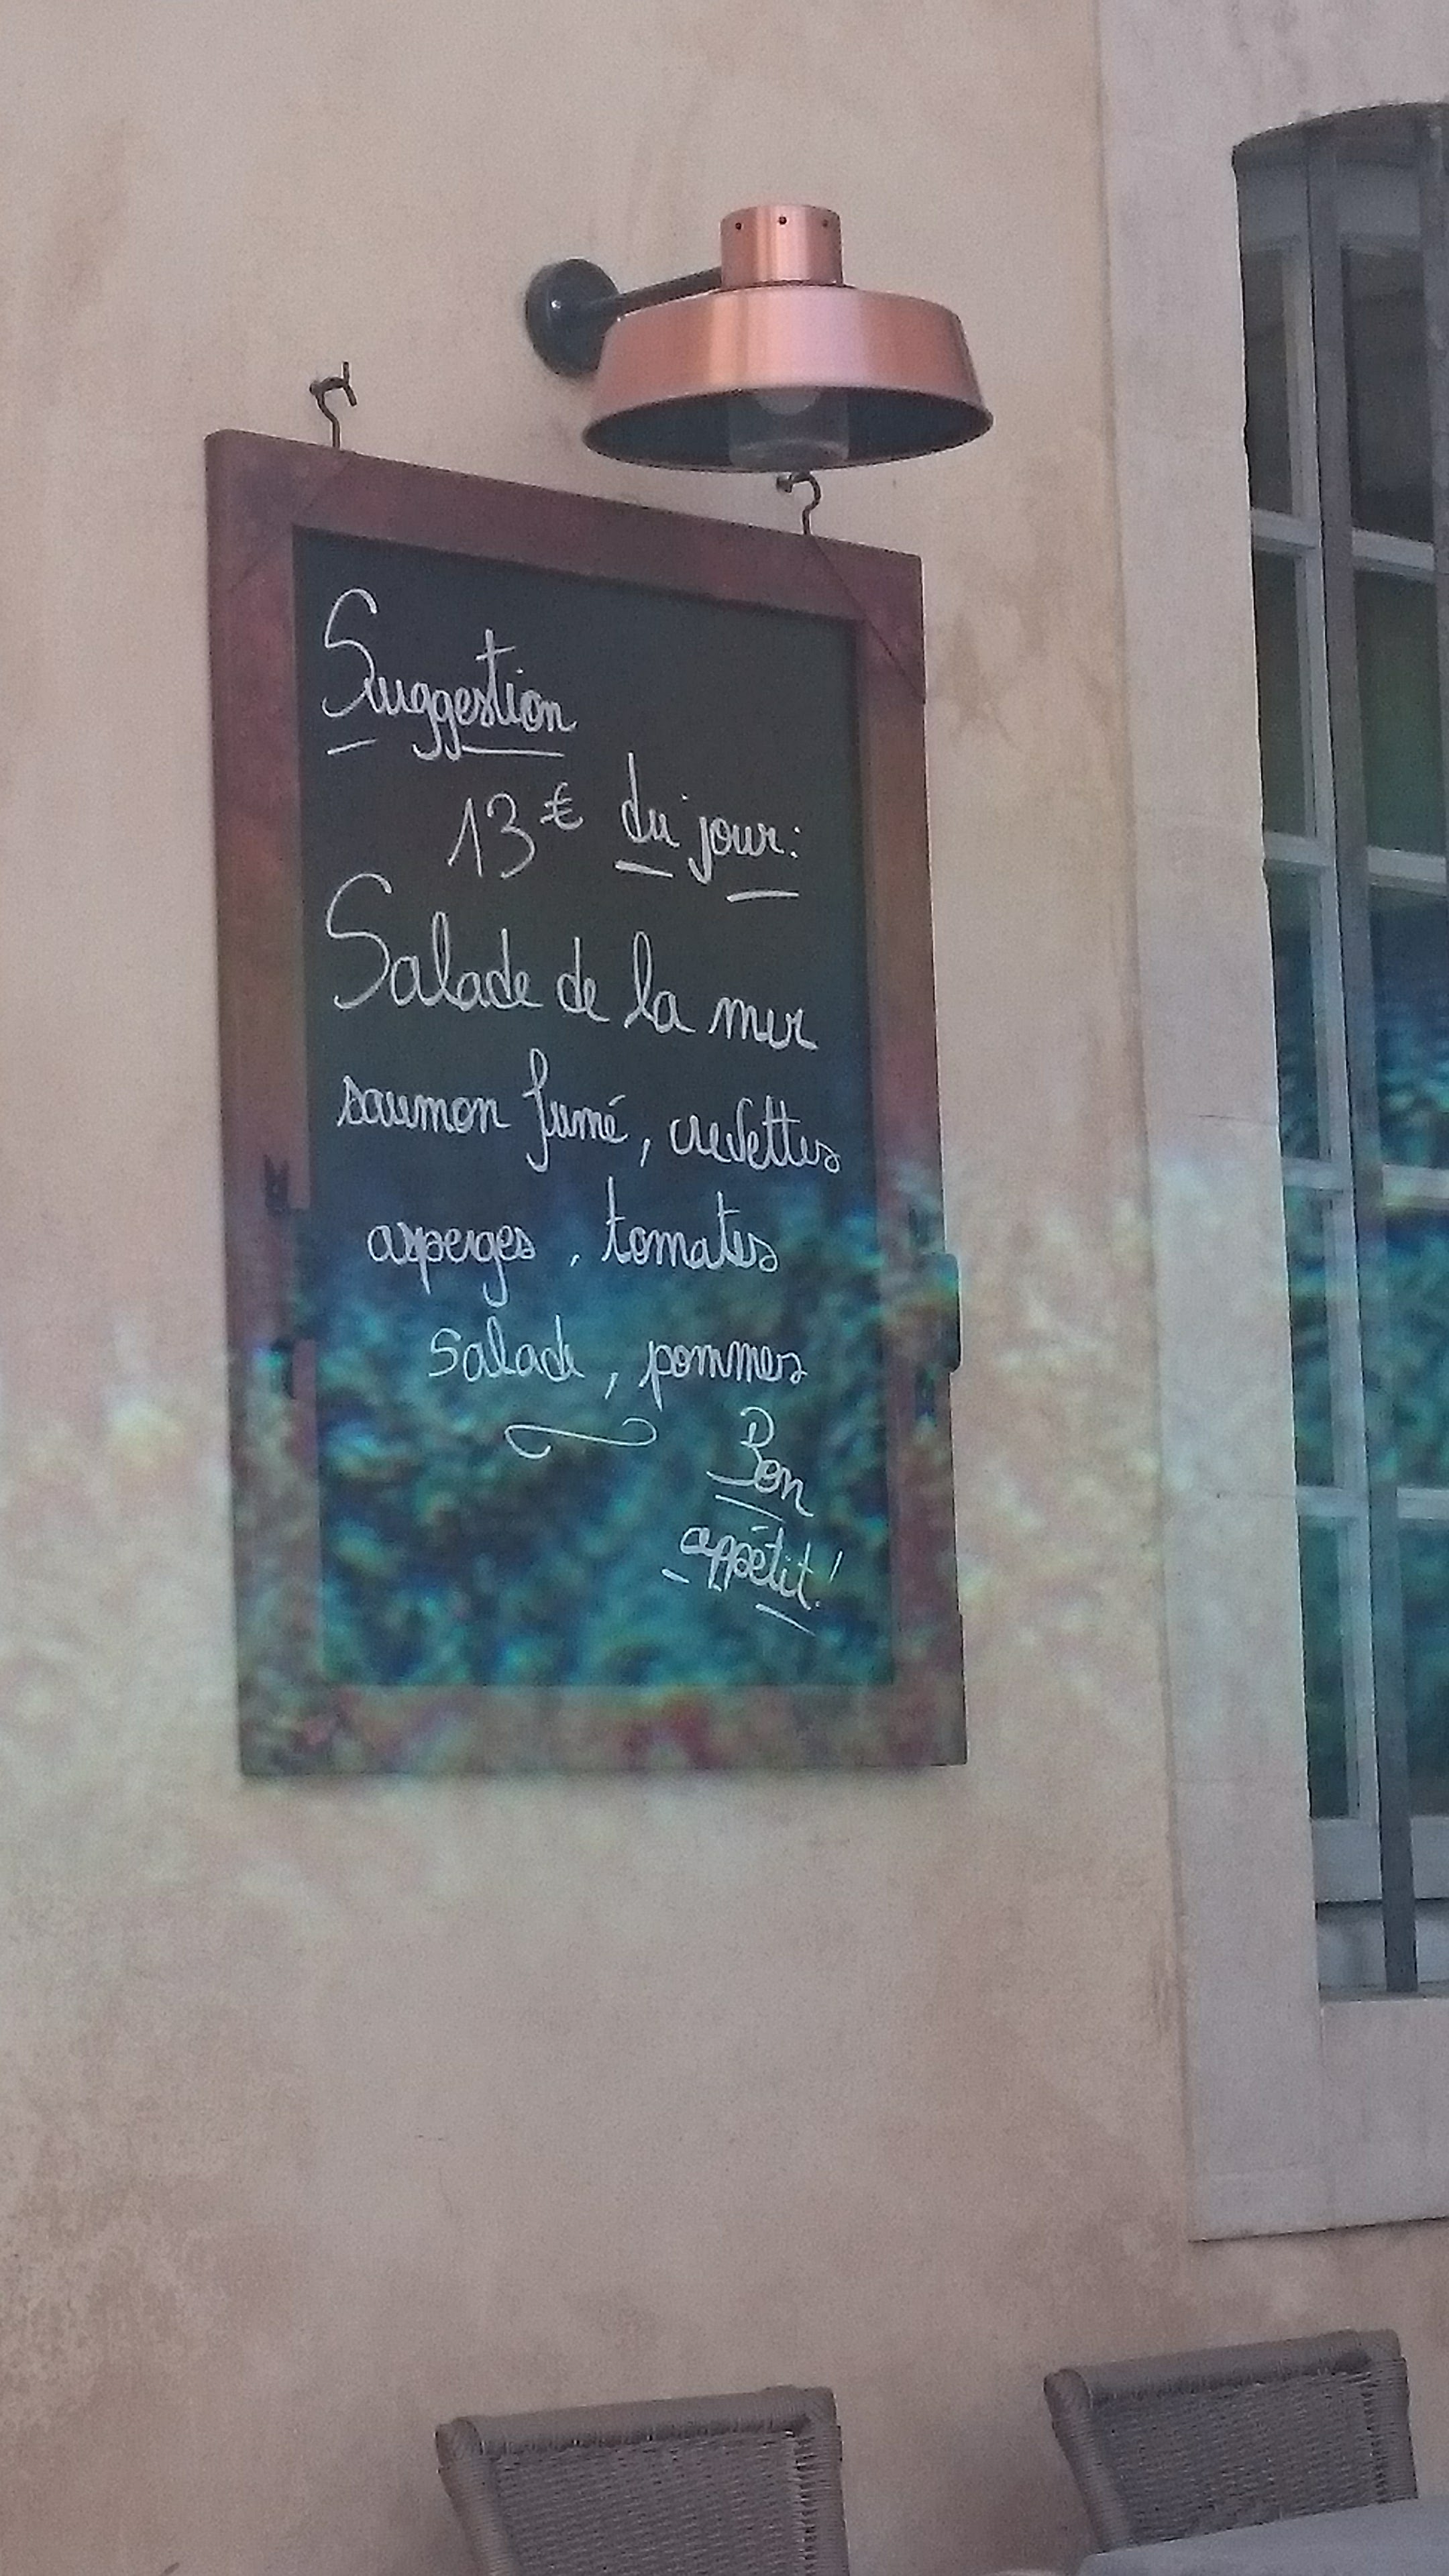 Suggestion
13€ du jour:
Salade de la mer
saumon fumé, crevettes
asperges, tomates
salade, pommes
Bon
appétit!